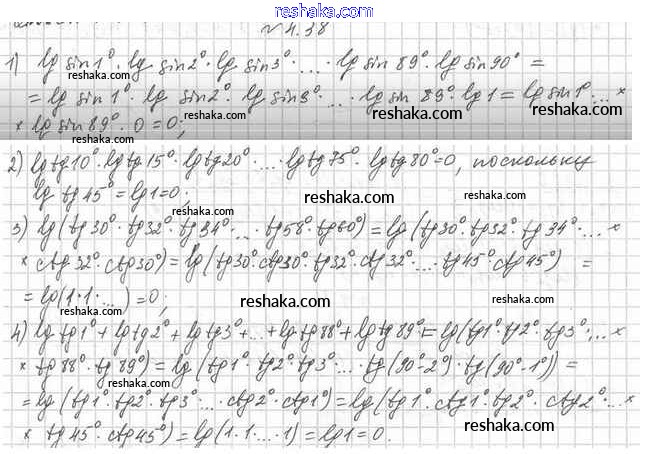 gdzguru.com
№ 4.38
1) lg sin1° · lg sin2° · lg sin3° · ... · lg sin 89° · lg sin90° =
= lg sin 1° · lg sin2° · lg sin3° · ... · lg sin 89° · lg 1 = lg sin1° · ... ×
× lg sin89° · 0 = 0;
2) lg tg10° · lg tg15° · lg tg20° · ... · lg tg75° · lg tg80° = 0, поскольку
lg tg45° = lg1 = 0;
3) lg(tg30° · tg32° · tg34° · ... · tg58° · tg60°) = lg(tg30° · tg32° · tg34° · ... ×
× ctg32° · ctg30°) = lg(tg30° · ctg30° · tg32° · ctg32° · ... · tg45° · ctg45°) =
= lg(1·1·...) = 0;
4) lg tg1° + lg tg2° + lg tg3° + ... + lg tg88° + lg tg89° = lg(tg1° · tg2° · tg3° · ... ×
× tg88° · tg89°) = lg(tg1° · tg2° · tg3° · ... · tg(90°-2°) · tg(90°-1°)) =
= lg(tg1° · tg2° · tg3° · ... · ctg2° · ctg1°) = lg(tg1° · ctg1° · tg2° · ctg2° · ... ×
× tg45° · ctg45°) = lg(1·1·...·1) = lg1 = 0.
reshaka.com
reshaka.com
reshaka.com
reshaka.com
reshaka.com
reshaka.com
reshaka.com
reshaka.com
reshaka.com
reshaka.com
reshaka.com
reshaka.com
reshaka.com